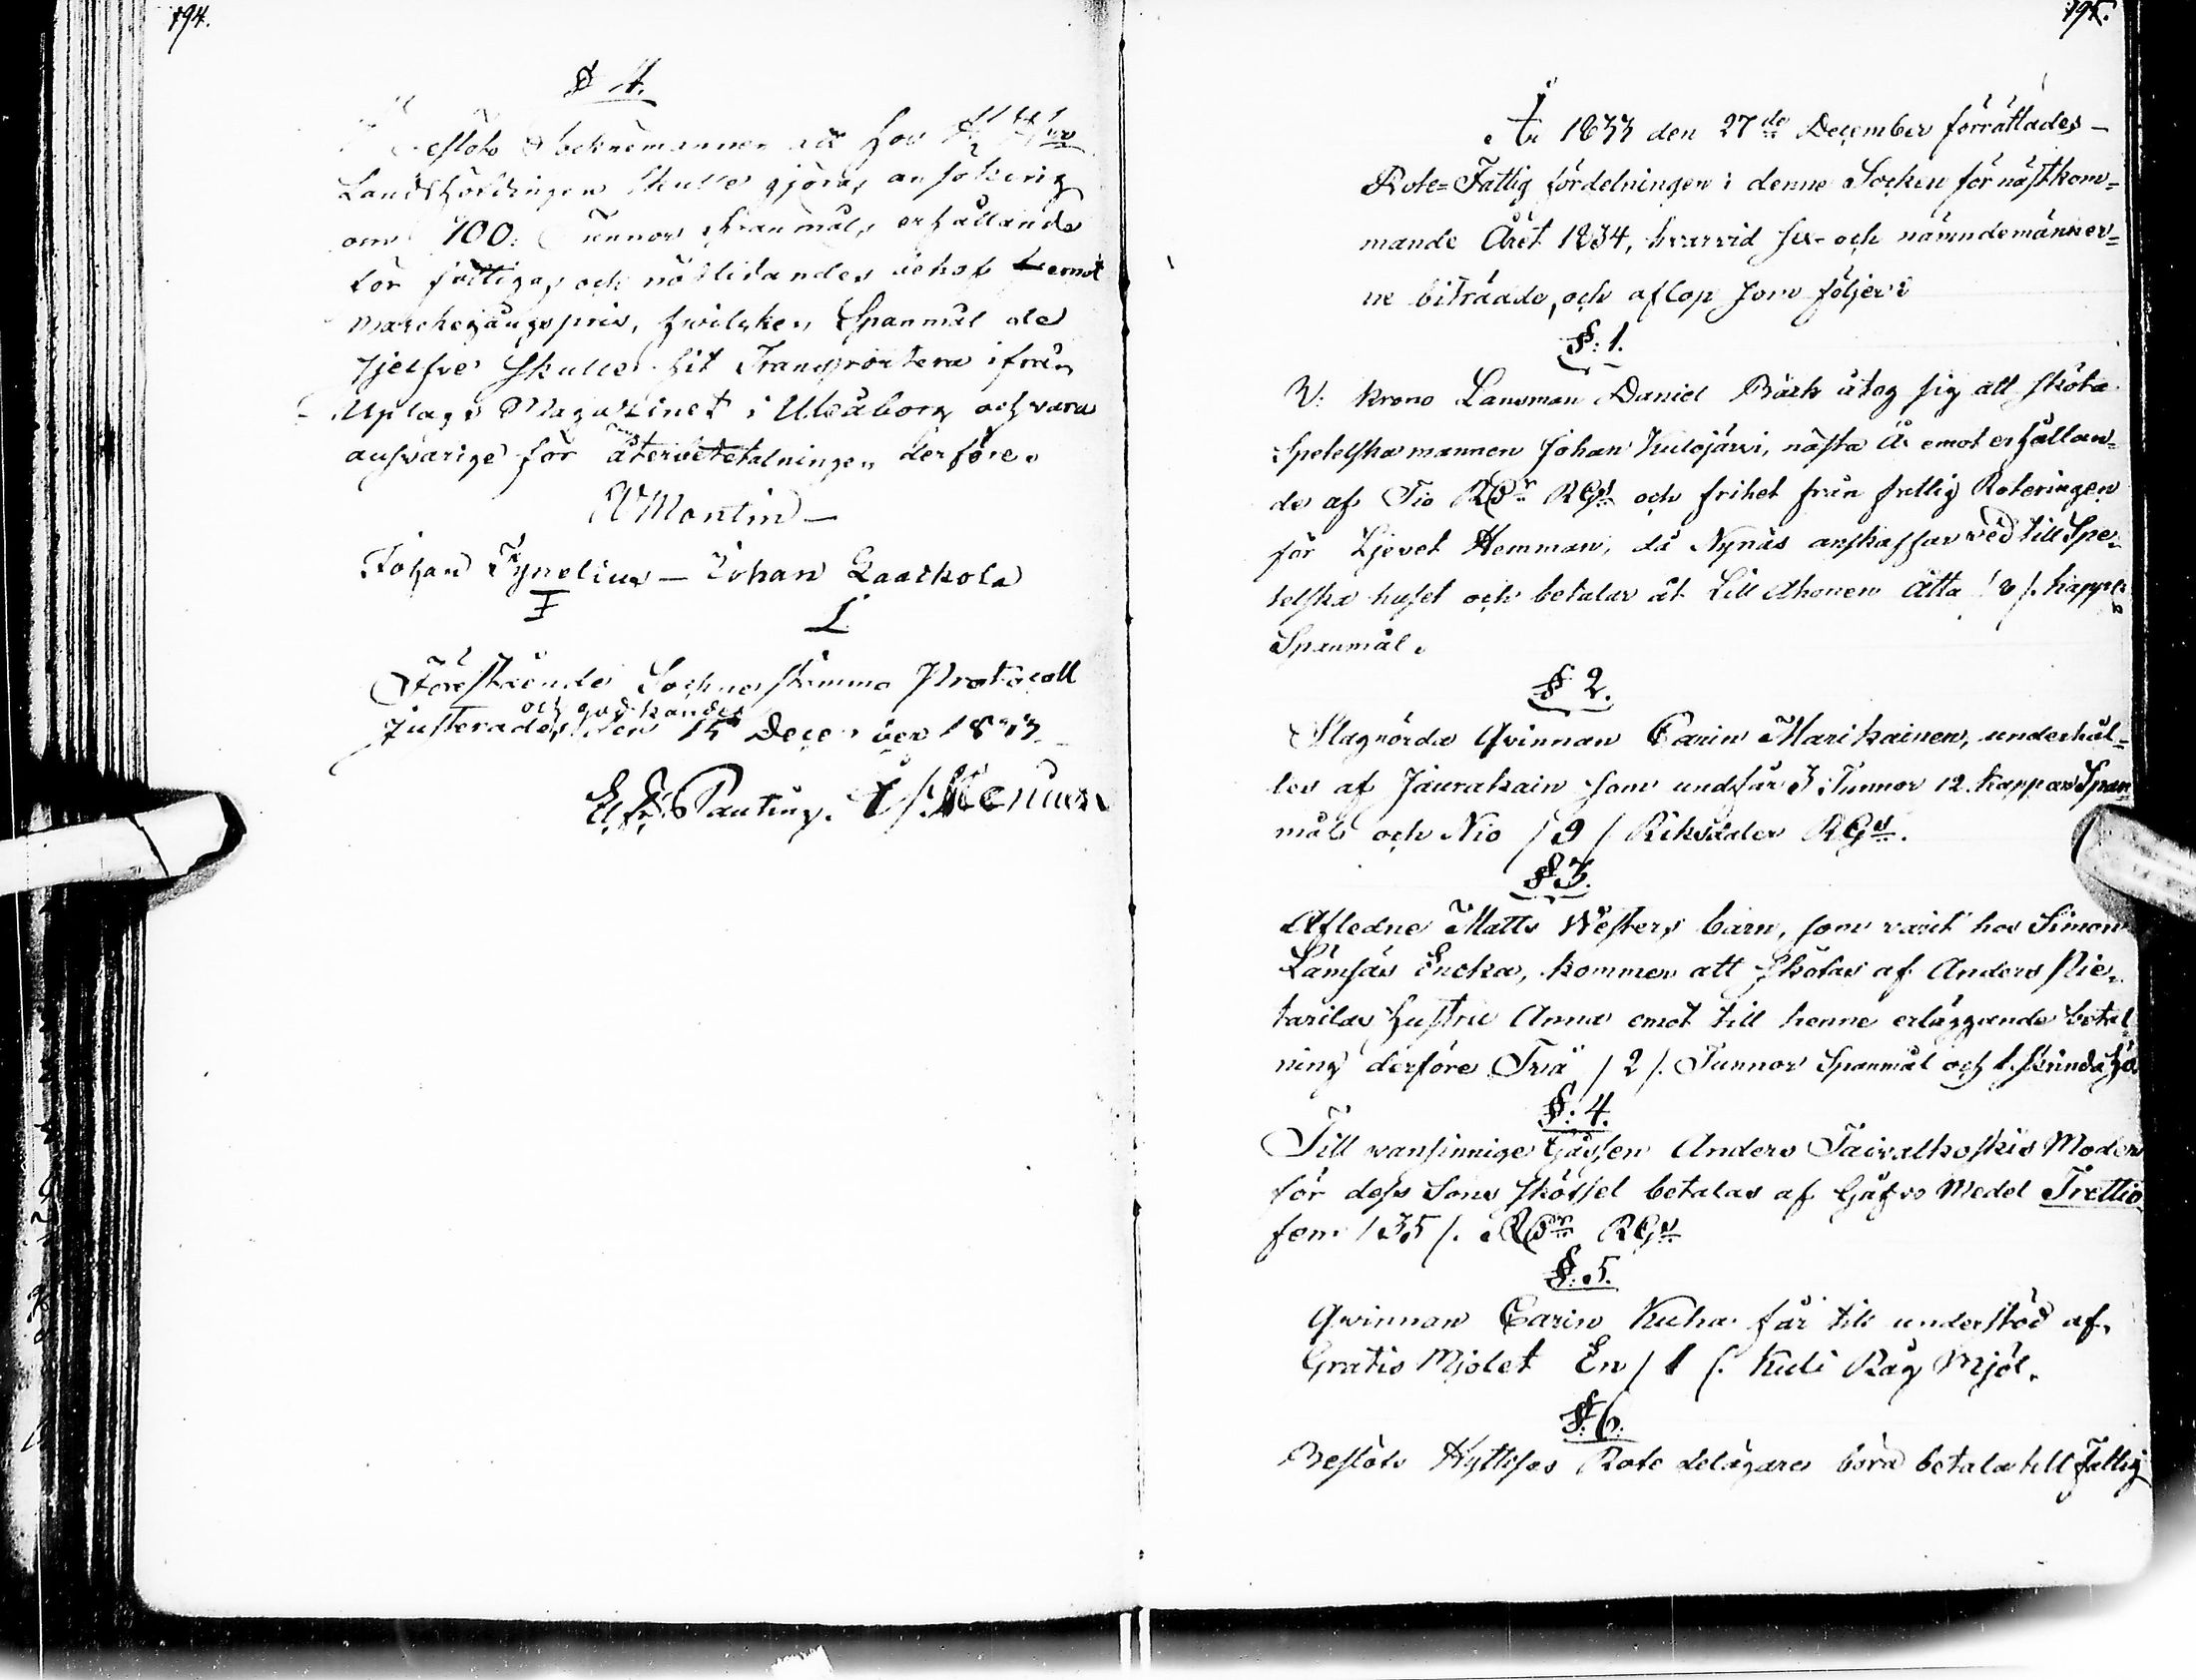 194.
§ 4.
Beslöts Socknemännen att hos
Landshöfdingen skulle göras ansökning
om 100. Tunnor Spanmåls erhållande
för fattiges och nödlidandes behof emot
Markegångspris, hwilken Spanmål de
sjelfve skulle hit Transportera ifrån
Uplags Magazinet i Uleåborg och vara
answarige för återbetalningen derföre.
A Montin —
Johan Tynelius — Johan Laackola
Föreståënde Sochnestämmo Protocoll
och godkändes
justerades den 15 December 1833.
195.
År 1833 den 27de December förrättades —
Rote=Fattig fördelningen i denne Socken för nästkom=
mande Året 1834, hvarvid sex och nämndemänner=
ne biträdde, och aflop som följer:
§: 1.
V: Krono Lansman Daniel Bäck åtog sig att sköta
Spetelska mannen Johan Kulojärvi, nästa År emot erhållan=
de af Tio RDr RGs och frihet från fattig Roteringen
för Hemman, då Nynäs anskaffar ved till Spe=
telska huset och betalar åt Lill Ahonen Åtta / 8 /. kappar
Spanmål.
§ 2.
Slagrörda Qvinnan Carin Marikainen, underhål=
les af Jaurakain som undfår 3 Tunnor 12 kappar Span
mål och Nio / 9 / Riksdaler RGs.
§ 3.
Afledne Matts Westers barn, som varit hos Simon
Lämsäs Encka, kommer att skötas af Anders Pie=
tarilas hustru Anna emot till henne erläggande betal
ning derföre Två / 2 /. Tunnor Spanmål och 1. skrinda hö
§: 4.
Till vansinnige Gåssen Anders Taivalkoskis Moder
för dess Sons skötsel betalas af Gåfvo Medel Trettio
fem / 35 /. RDr RGs
§: 5.
Qvinnan Carin Kuha får till understöd af
Gratis Mjölet En / 1 /. Kuli Råg Mjöl.
§: 6.
Beslöts Rote delägare böra betala till Fattig